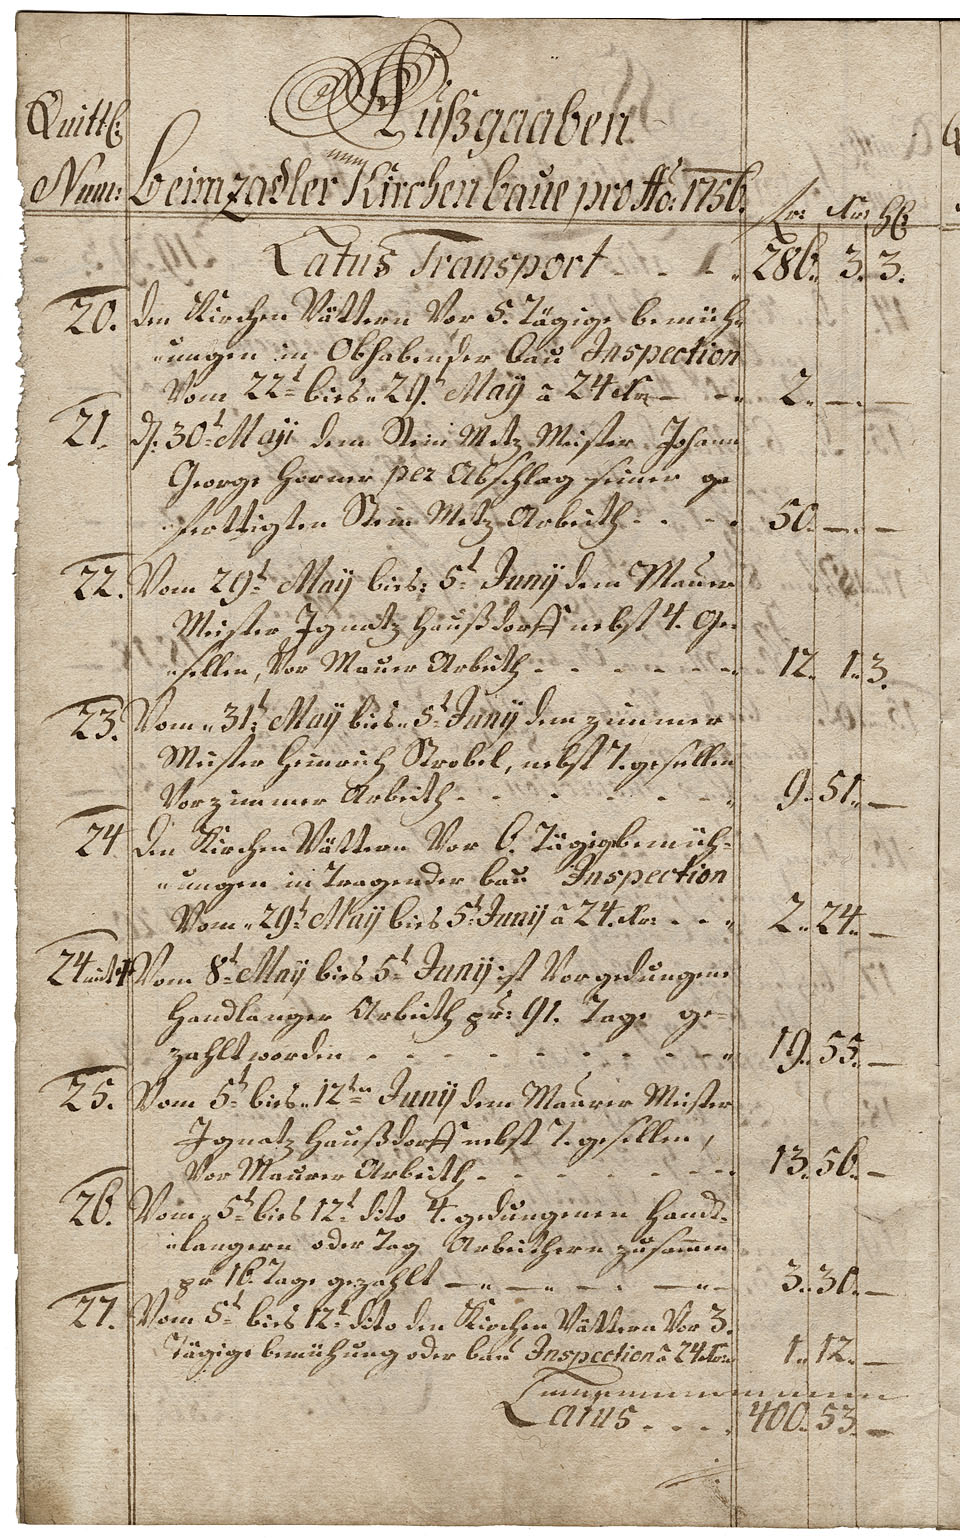 Quittl:
Außgaaben
Num: beim zadler Kirchen baue pro Aõ: 1756.
fr: Kr: hl:
Latus Transport - - - - 286. 3. 3.
20. den Kirchen Vättern Vor 5. Tägige bemüh-
ungen in Obhabender bau Inspection
Vom 22t bies 29t May â 24 Kr - - 2. — —
21. d. 30t Maji dem Stein Metz Meister Johann
George Horner per Abschlag seiner ge
fertigten Stein Metz Arbeith - - - 50. — —
22. Vom 29t Maÿ bies: 5t Junÿ dem Maurer
Meister Ignatz Haußdorff nebst 4. Ge-
sellen, Vor Maurer Arbeith - - - - - 12. 1. 3.
23. Vom 31t Maÿ bies 5t Junÿ dem zimmer
Meister Heinrich Strobel, nebst 7. gesellen
Vor zimmer Arbeith - - - - - - 9. 51. —
24 den Kirchen Vättern Vor 6. Tägige bemüh-
ungen in Tragender bau Inspection
Vom 29t Maÿ bies 5t Junÿ â 24. Kr: - - 2. 24. —
24 Vom 8t Maÿ bies 5t Junÿ ist Vor gedungene
Handlanger Arbeith pr: 91. Tage ge-
zahlt worden - - - - - - - - 19. 55. —
25. Vom 5t bies 12ten Junÿ dem Maurer Meister
Ignatz Haußdorff nebst 7. gesellen,
Vor Maurer Arbeith - - - - - - 13. 56. —
26. Vom 5t bies 12t dito 4. gedungenen Handt-
langern oder Tag Arbeithern zusammen
pr 16. Tage gezahlt — — — — 3. 30. —
27. Vom 5t bies 12t dito den Kirchen Vättern Vor 3.
Tägige bemühung oder bau Inspection â 24 Kr: 1. 12. —
Latus - - - - 400. 53. —